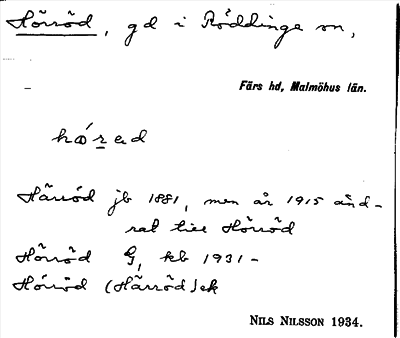 Hörröd, gd i Röddinge sn,
Färs hd, Malmöhus län.
hǿrad
Härröd jb 1881, men år 1915 änd-
rat till Hörröd
Hörröd G, kb 1931-
Hörröd (Härröd) ek
NILS NILSSON 1934.